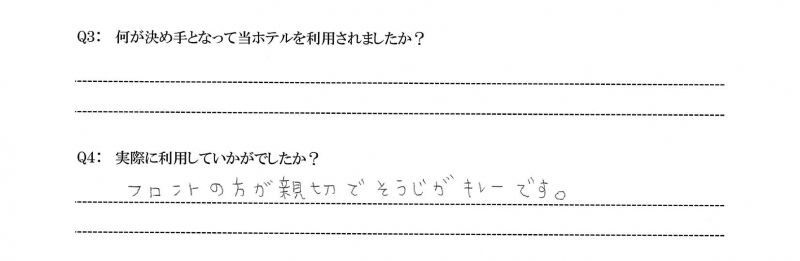 Q3: 何が決め手となって当ホテルを利用されましたか？
Q4: 実際に利用していかがでしたか？
フロントの方が親切でそうじがキレーです。